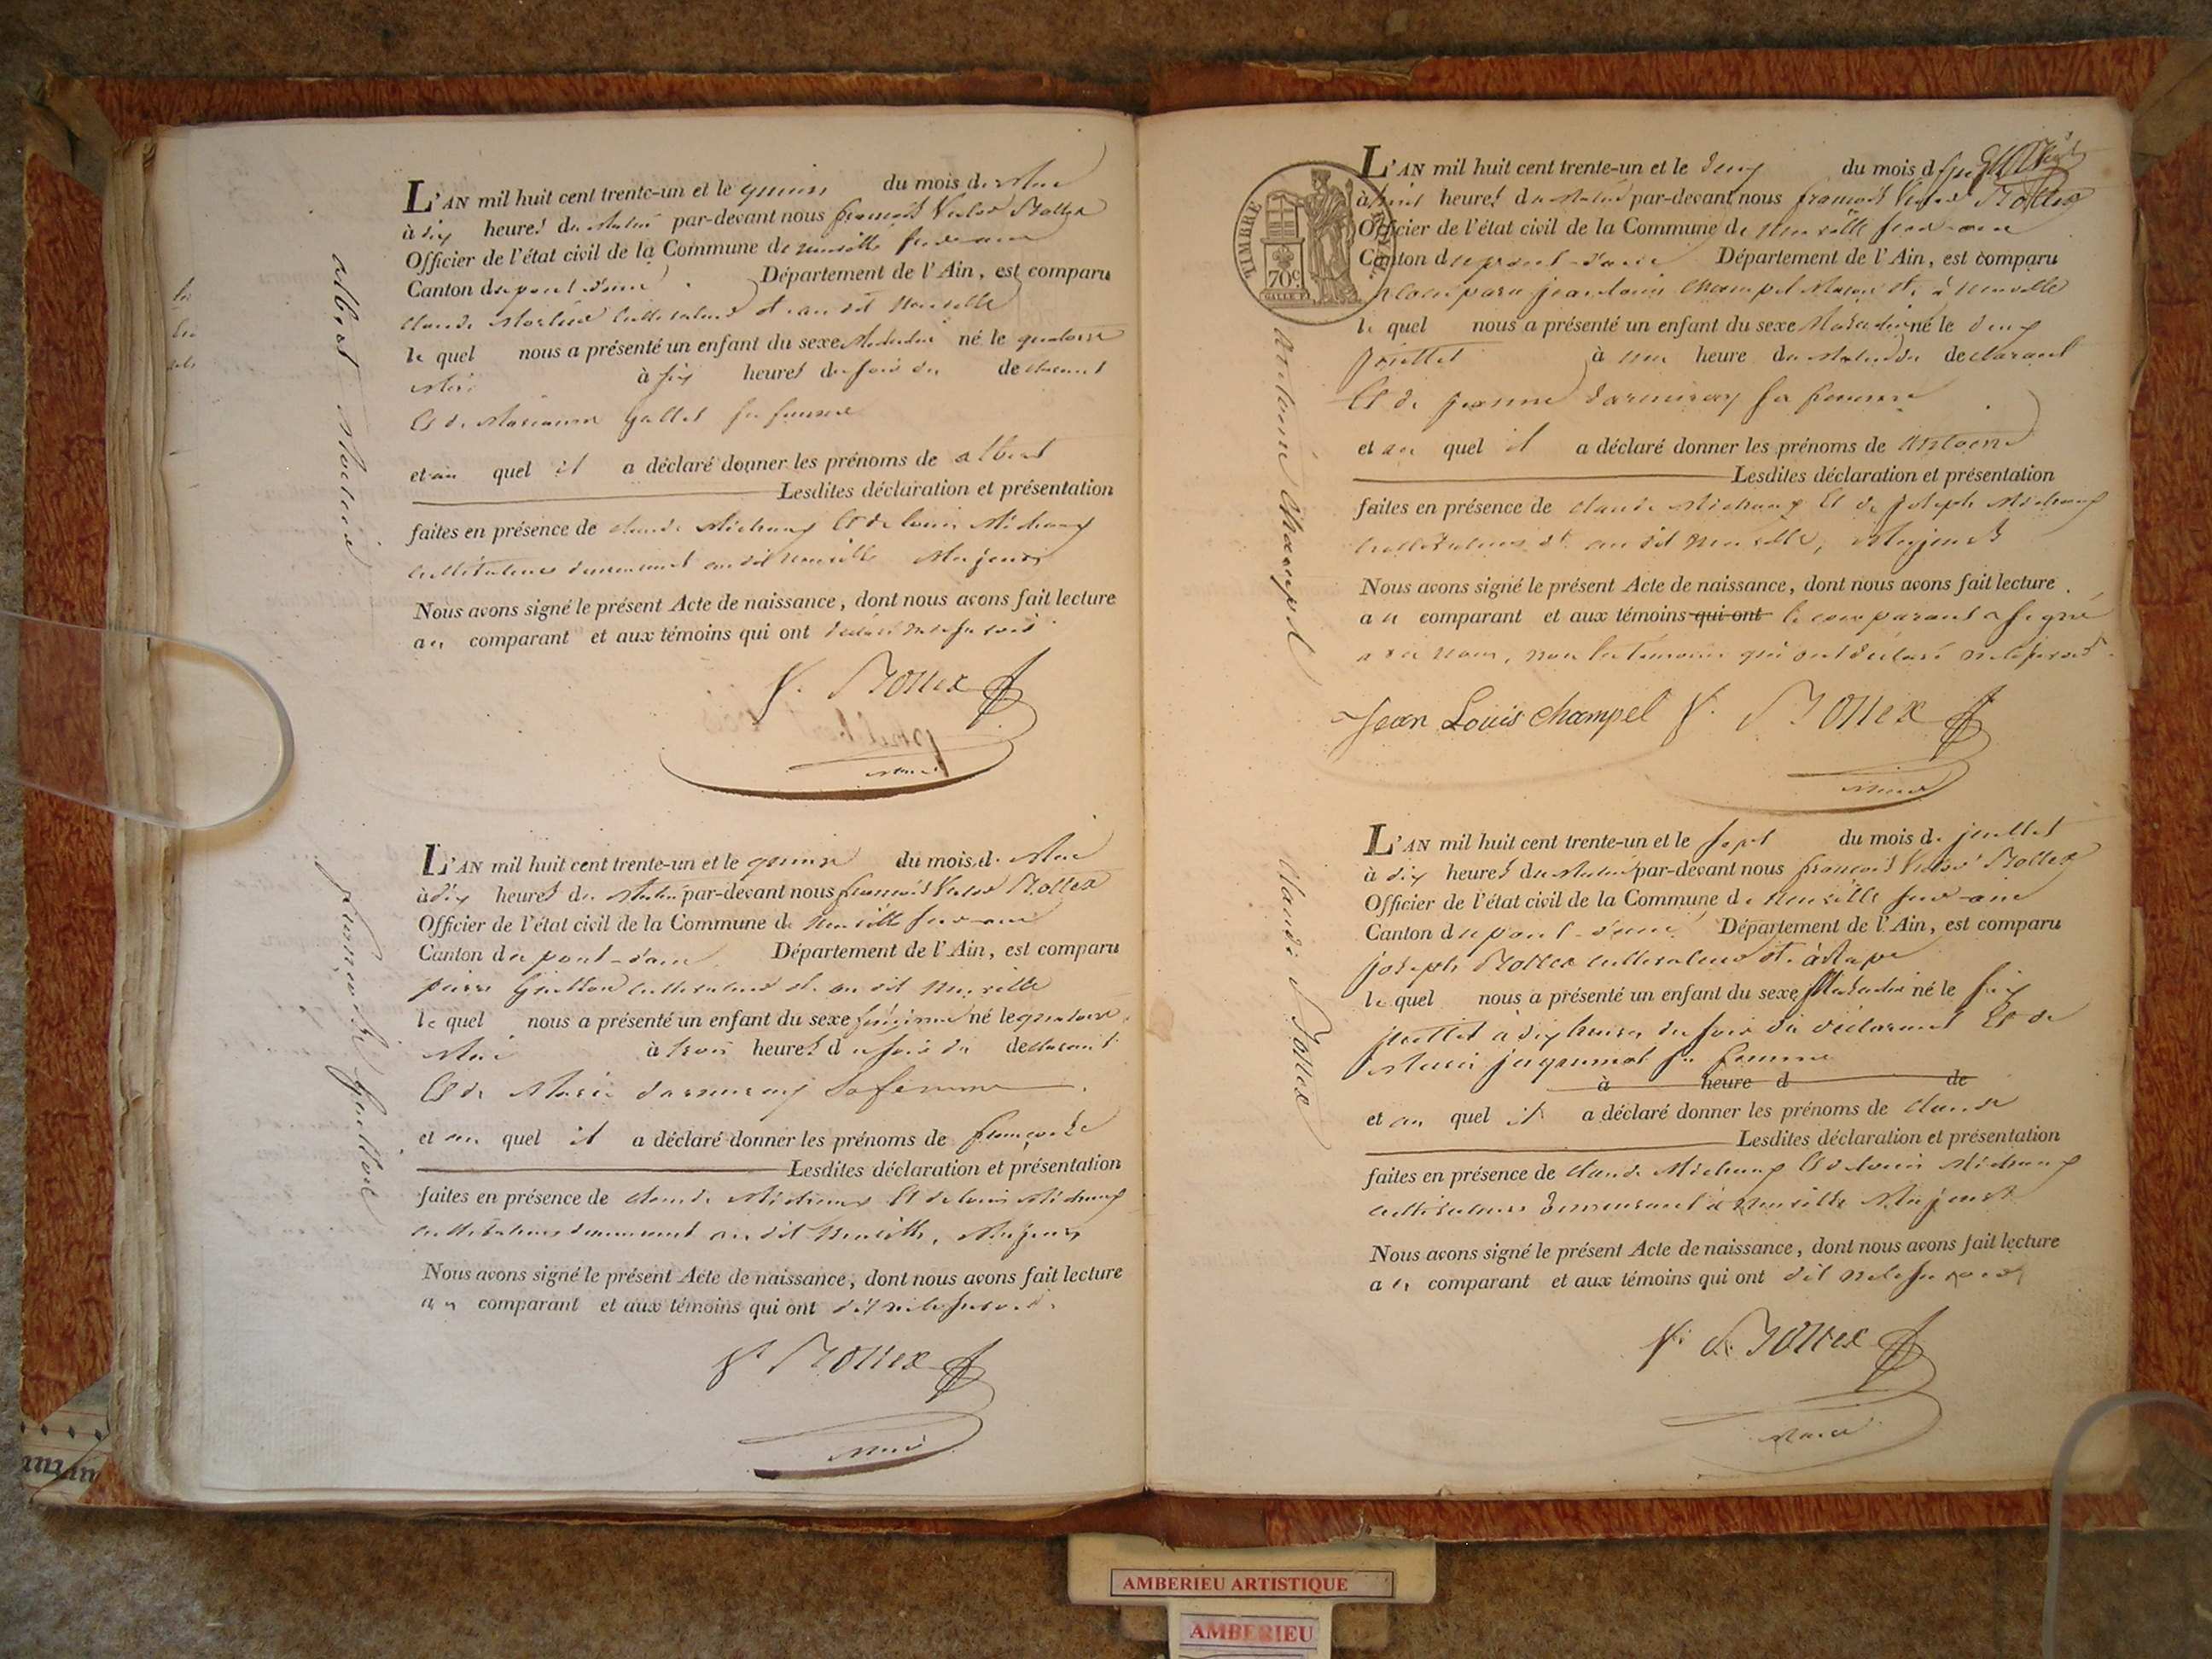 albert Morlin
L'AN mil huit cent trente-un et le quinze du mois de Mai
à dix heures du Matin par-devant nous françois Victor Bottex
Officier de l'état civil de la Commune de neuville sur ain
Canton du pont d'ain Département de l'Ain, est comparu
Claude cultivateur dt. au dit Neuville
le quel nous a présenté un enfant du sexe Masculin né le quatorze
Mai à six heures du soir du declarant
Et de Marianne Gallet sa femme
et au quel il a déclaré donner les prénoms de albert
Lesdites déclaration et présentation
faites en présence de claude Michaux Et de louis Michaux
cultivateurs demeurant au dit Neuville Majeurs
Nous avons signé le présent Acte de naissance, dont nous avons fait lecture
au comparant et aux témoins qui ont déclaré ne le savoir
V. Bottex
Maire
françoise Guillon
L'AN mil huit cent trente-un et le quinze du mois de Mai
à dix heures du Matin par-devant nous françois Victor Bottex
Officier de l'état civil de la Commune de Neuville sur ain
Canton du pont-d'ain Département de l'Ain, est comparu
pierre Guillon cultivateur dt. au dit Neuville
le quel nous a présenté un enfant du sexe féminin né le quatorze
Mai à trois heures du soir du declarant
Et de Marie darmeray sa femme
et au quel il a déclaré donner les prénoms de françoise
Lesdites déclaration et présentation
faites en présence de claude Michaux Et de louis Michaux
cultivateurs demeurant au dit Neuville, Majeurs
Nous avons signé le présent Acte de naissance, dont nous avons fait lecture
au comparant et aux témoins qui ont dit ne le savoir.
Vr Bottex
Maire
TIMBRE ROYAL
70c.
antoine Champel
L'AN mil huit cent trente-un et le deux du mois d juillet
à huit heures du Matin par-devant nous françois Victor Bottex
Officier de l'état civil de la Commune de Neuville sur-ain
Canton du pont-d'ain Département de l'Ain, est comparu
comparu jean louis Champel Maçon dt. à Neuville
le quel nous a présenté un enfant du sexe Masculin né le deux
juillet à une heure du Matin du declarant
Et de jeanne darmeray sa femme
et au quel il a déclaré donner les prénoms de Antoine
Lesdites déclaration et présentation
faites en présence de claude Michaux Et de joseph Michaux
cultivateurs dt. au dit Neuville, Majeurs
Nous avons signé le présent Acte de naissance, dont nous avons fait lecture
au comparant et aux témoins qui ont le comparant a signé
avec nous, non les témoins qui ont déclaré ne le savoir.
Jean Louis Champel V. Bottex
Maire
claude Bottex
L'AN mil huit cent trente-un et le sept du mois de juillet
à dix heures du Matin par-devant nous françois Victor Bottex
Officier de l'état civil de la Commune de Neuville sur-ain
Canton du pont-d'ain Département de l'Ain, est comparu
joseph Bottex cultivateur dt. à
le quel nous a présenté un enfant du sexe Masculin né le six
juillet à dix heures du soir du déclarant Et de
Marie sa femme
à heure d de
et au quel il a déclaré donner les prénoms de claude
Lesdites déclaration et présentation
faites en présence de claude Michaux Et de louis Michaux
cultivateurs demeurant à Neuville Majeurs
Nous avons signé le présent Acte de naissance, dont nous avons fait lecture
au comparant et aux témoins qui ont dit ne le savoir
Vr Bottex
Maire
AMBERIEU ARTISTIQUE
AMBERIEU